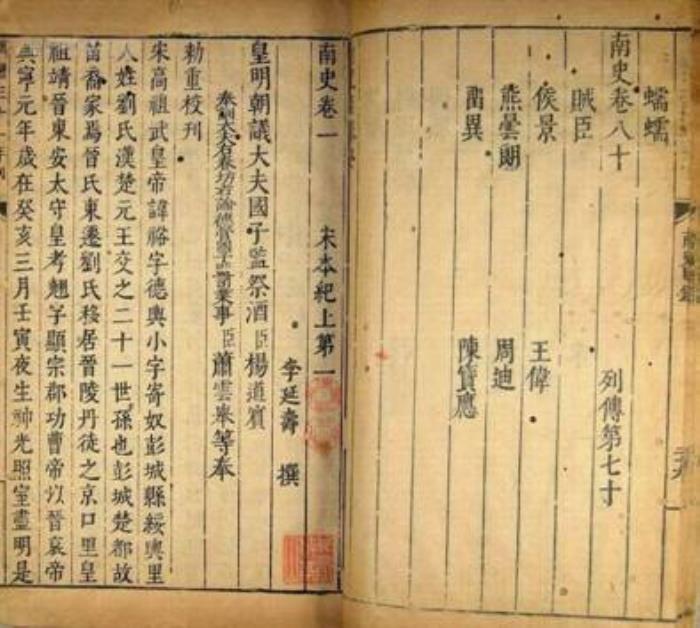 蠕蠕
南史卷八十 列傳第七十
賊臣
侯景 王偉
熊曇朗 周迪
留異 陳寶應
南史卷一 宋本紀上第一
李延壽 撰
皇明朝議大夫國子監祭酒臣楊道賓
司業事臣蕭雲舉等奉
勅重校刊
宋高祖武皇帝諱裕字德輿小字寄奴彭城縣綏輿里
人姓劉氏漢楚元王交之二十一世孫也彭城楚都故
苗裔家焉晉氏東遷劉氏移居晉陵丹徒之京口里皇
祖靖晉東安太守皇考翹字顯宗郡功曹帝以晉哀帝
興寧元年歲在癸亥三月壬寅夜生神光照室盡明是